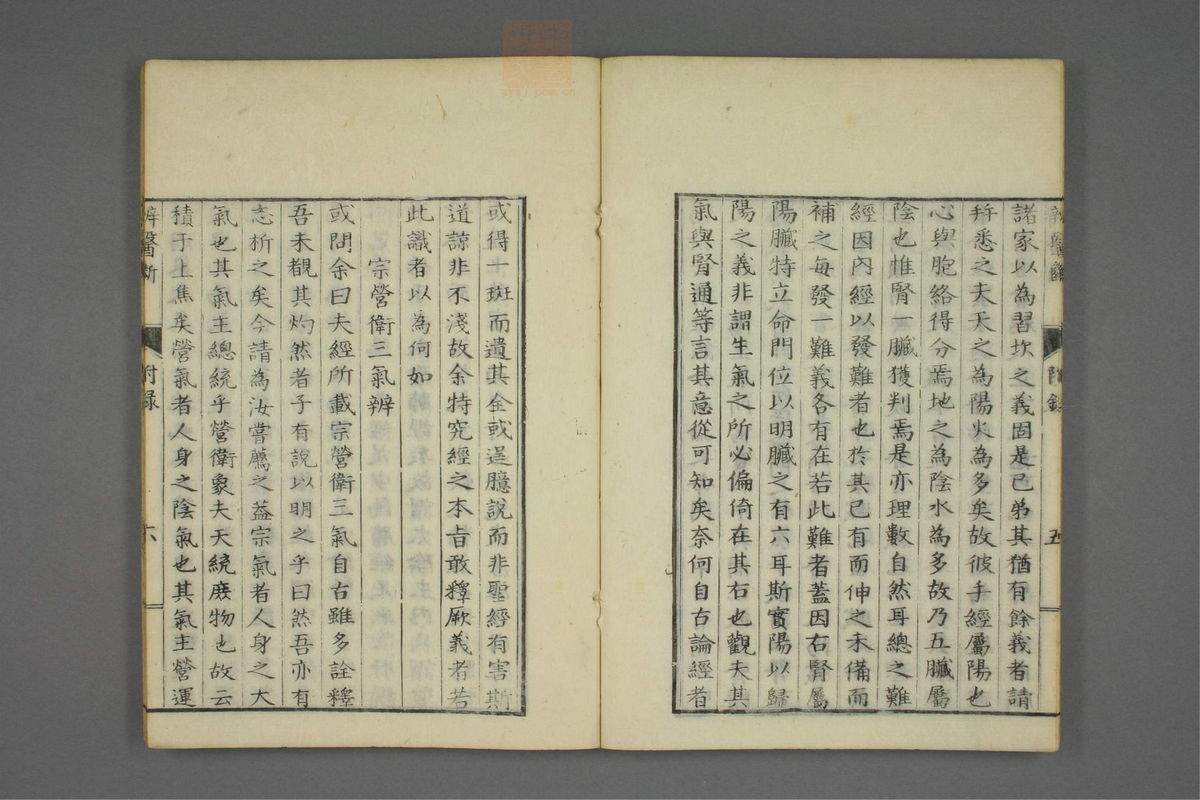 諸家以為習坎之義固是已弟其猶有餘義者請
疏悉之夫天之為陽火為多矣故彼手經屬陽也
心與胞絡得分焉地之為陰水為多故乃五臟屬
陰也惟腎一臟獲判焉是亦理數自然耳總之難
經因內經以發難者也於其已有而伸之未備而
補之每發一難義各有在若此難者蓋因右腎屬
陽臟特立命門位以明臟之有六耳斯實陽以歸
陽之義非謂生氣之所必偏倚在其右也觀夫其
氣與腎通等言其意從可知矣奈何自古論經者
五
或得一斑而遺其全或逞臆說而非聖經有害斯
道諒非不淺故余特究經之本旨敢釋厥義者若
此識者以為何如
宗營衛三氣辨
或問余曰夫經所載宗營衛三氣自古雖多詮釋
吾未覩其灼然者子有說以明之乎曰然吾亦有
志析之矣今請為汝嘗臆之蓋宗氣者人身之大
氣也其氣主總統乎營衛象夫天統庶物也故云
積于上焦矣營氣者人身之陰氣也其氣主營運
辨醫斷
附錄
六